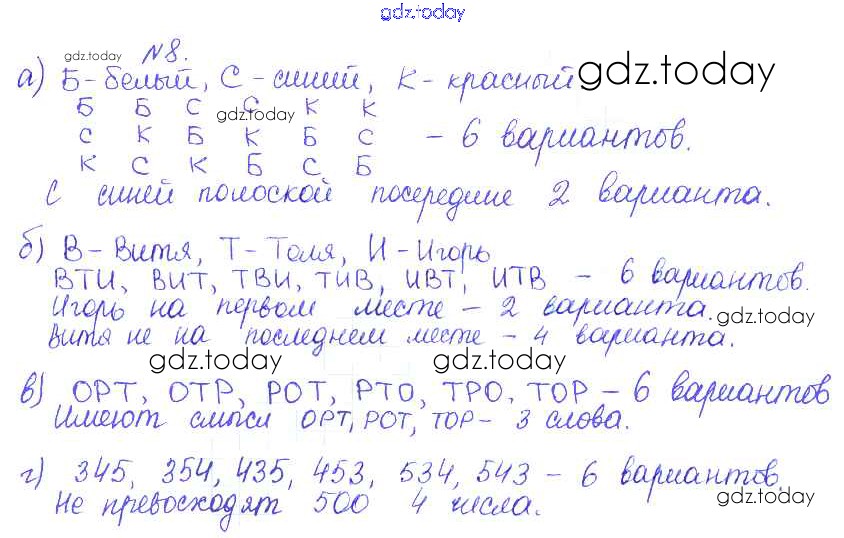 gdz.today
gdz.today №8.
а) Б-белый, С-синий, К-красный gdz.today
Б Б С С К К
gdz.today
С К Б К Б С - 6 вариантов.
К С К Б С Б
С синей полоской посередине 2 варианта.
б) В-Витя, Т-Толя, И-Игорь
ВТИ, ВИТ, ТВИ, ТИВ, ИВТ, ИТВ - 6 вариантов.
Игорь на первом месте - 2 варианта. gdz.today
Витя не на последнем месте - 4 варианта.
gdz.today gdz.today
в) ОРТ, ОТР, РОТ, РТО, ТРО, ТОР - 6 вариантов
Имеют смысл ОРТ, РОТ, ТОР - 3 слова.
г) 345, 354, 435, 453, 534, 543 - 6 вариантов.
Не превосходят 500 4 числа. gdz.today